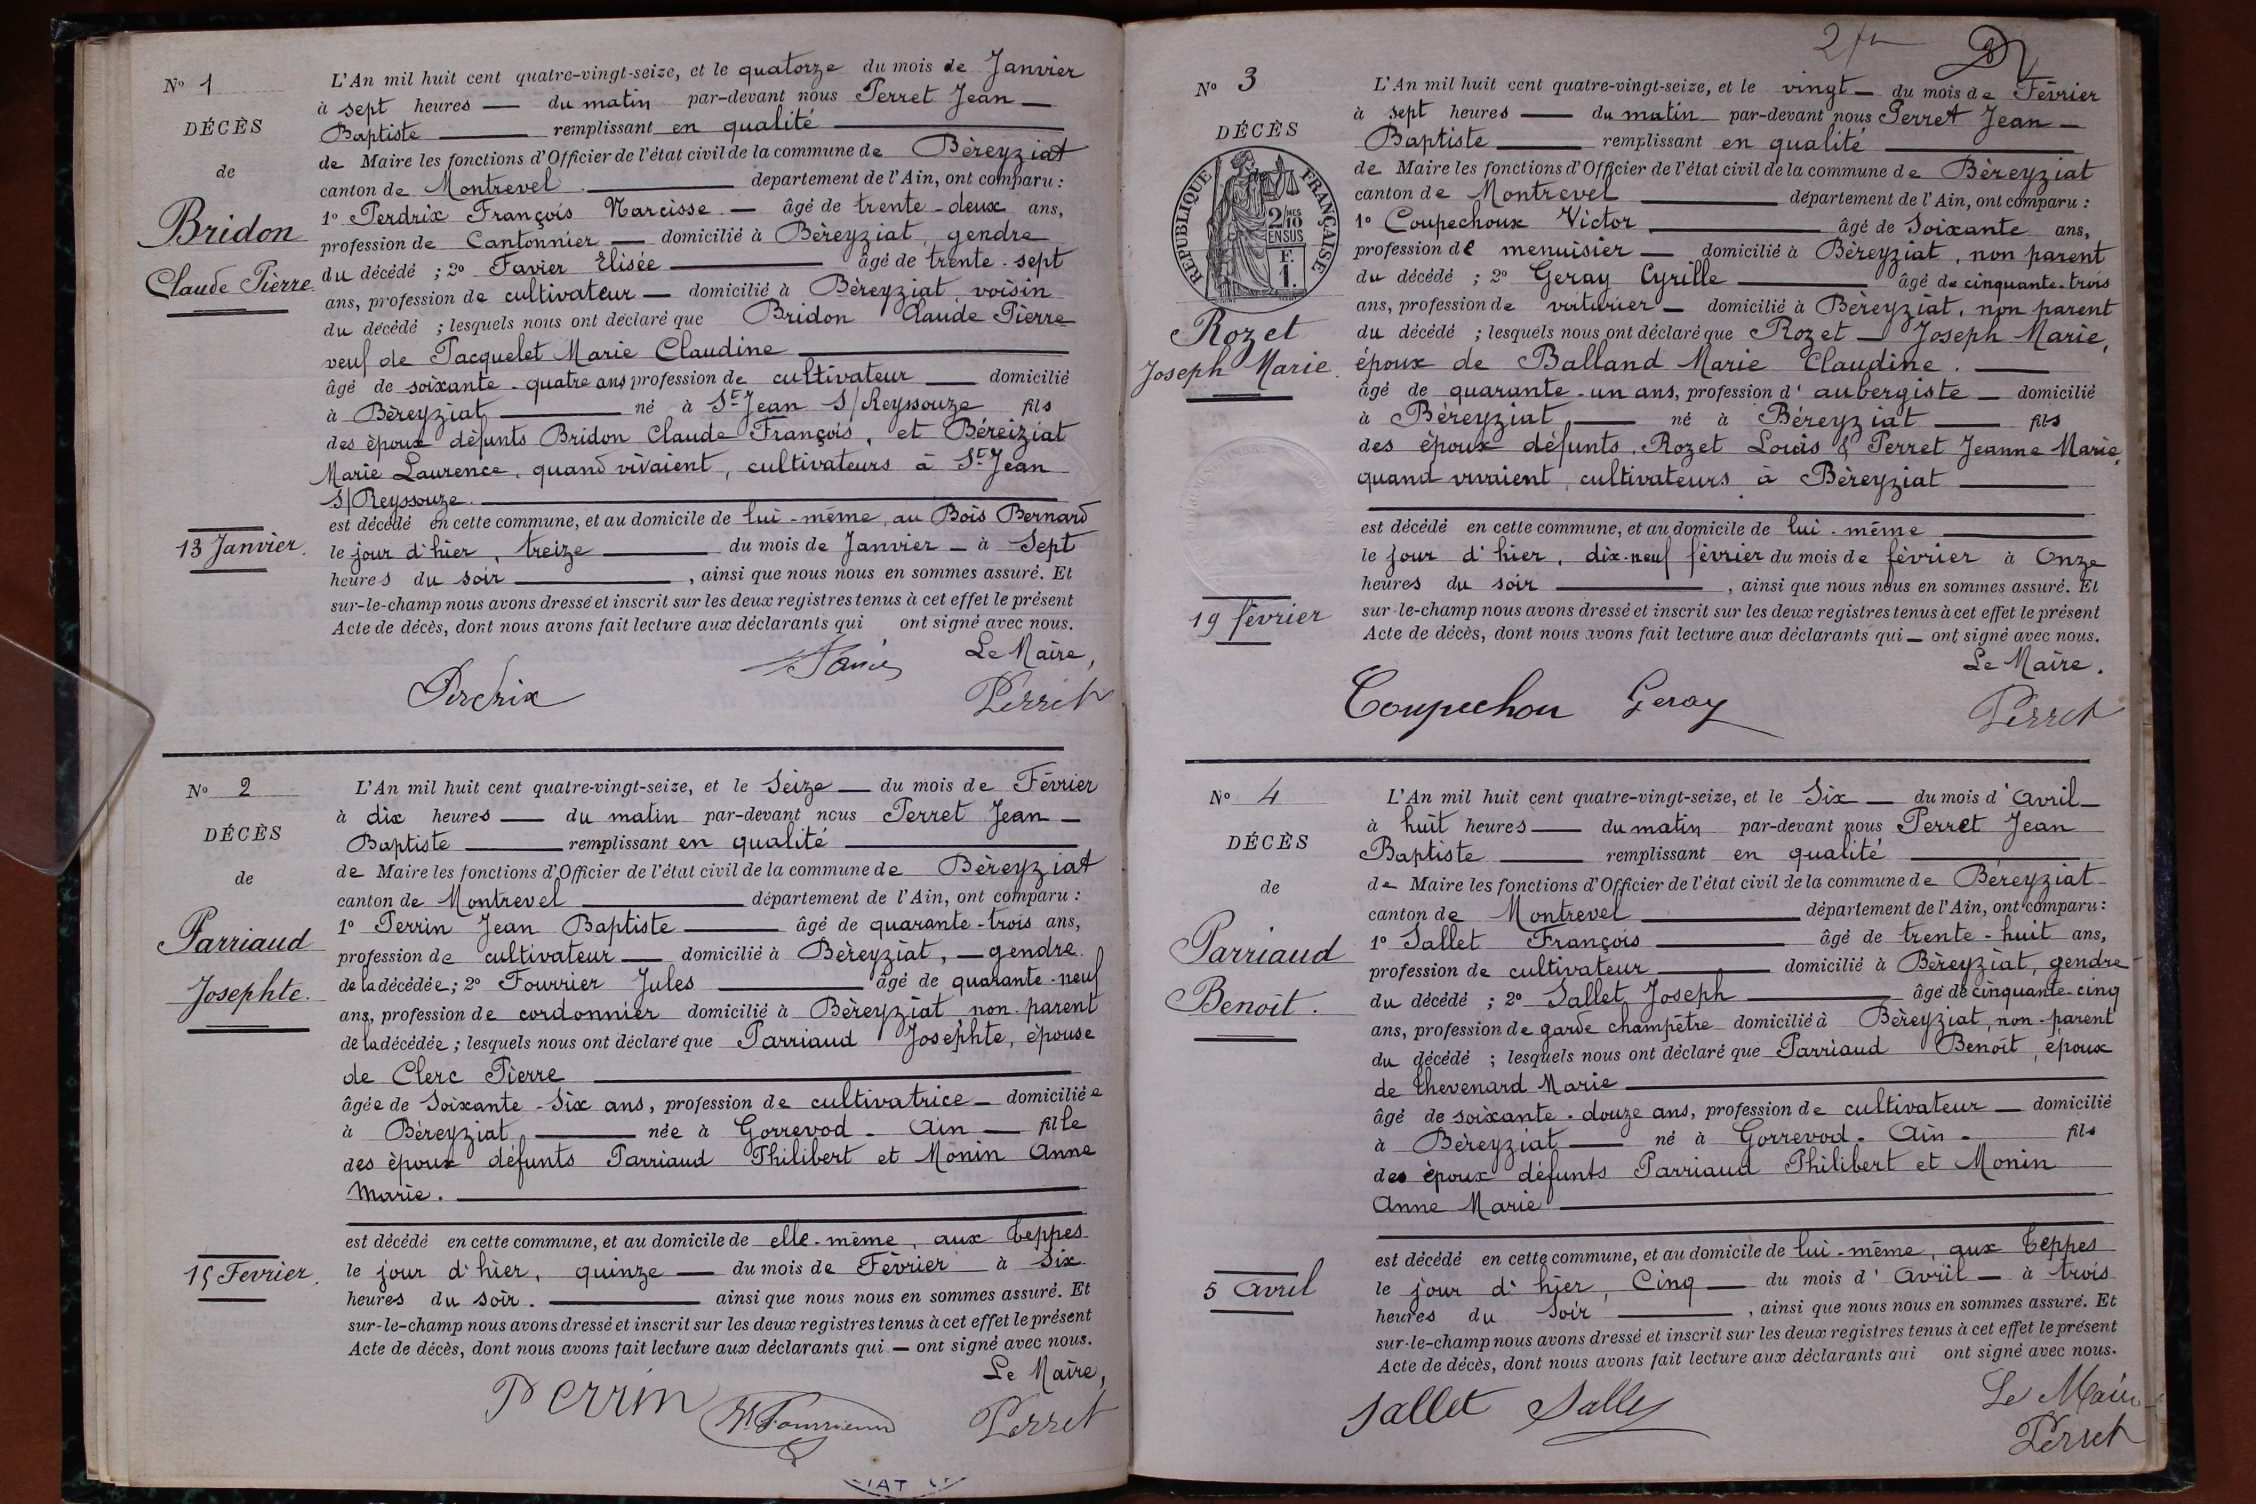 N° 1
DÉCÈS
de
Bridon
Claude Pierre.
13 Janvier.
L'An mil huit cent quatre-vingt-seize, et le quatorze du mois de Janvier
à sept heures — du matin par-devant nous Perret Jean —
Baptiste — remplissant en qualité —
de Maire les fonctions d'Officier de l'état civil de la commune de Béreyziat
canton de Montrevel — département de l'Ain, ont comparu :
1° Perdrix François Narcisse — âgé de trente-deux ans,
profession de Cantonnier — domicilié à Béreyziat, gendre
du décédé ; 2° Favier Elisée — âgé de trente-sept
ans, profession de cultivateur — domicilié à Béreyziat, voisin
du décédé ; lesquels nous ont déclaré que Bridon Claude Pierre
veuf de Pacquelet Marie Claudine —
âgé de soixante-quatre ans profession de cultivateur — domicilié
à Béreyziat — né à St Jean S/Reyssouze fils
des époux défunts Bridon Claude François, et Béreiziat
Marie Laurence, quand vivaient, cultivateurs à St Jean
S/Reyssouze. —
est décédé en cette commune, et au domicile de lui-même, au Bois Bernard
le jour d'hier, treize — du mois de Janvier — à Sept
heures du soir —, ainsi que nous nous en sommes assuré. Et
sur-le-champ nous avons dressé et inscrit sur les deux registres tenus à cet effet le présent
Acte de décès, dont nous avons fait lecture aux déclarants qui ont signé avec nous.
Le Maire,
Perdrix Perret
N° 2
DÉCÈS
de
Parriaud
Josephte.
15 Fevrier.
L'An mil huit cent quatre-vingt-seize, et le Seize — du mois de Février
à dix heures — du matin par-devant nous Perret Jean —
Baptiste — remplissant en qualité —
de Maire les fonctions d'Officier de l'état civil de la commune de Béreyziat
canton de Montrevel — département de l'Ain, ont comparu :
1° Perrin Jean Baptiste — âgé de quarante-trois ans,
profession de cultivateur — domicilié à Béreyziat, — gendre
de la décédée ; 2° Fourrier Jules — âgé de quarante-neuf
ans, profession de cordonnier domicilié à Béreyziat non parent
de la décédée ; lesquels nous ont déclaré que Parriaud Josephte, épouse
de Clerc Pierre —
âgée de Soixante-Six ans, profession de cultivatrice — domiciliée
à Béreyziat — née à Gorrevod - Ain — fille
des époux défunts Parriaud Philibert et Monin Anne
Marie. —
est décédé en cette commune, et au domicile de elle-même, aux Teppes
le jour d'hier, quinze — du mois de Février à Six
heures du soir. — ainsi que nous nous en sommes assuré. Et
sur-le-champ nous avons dressé et inscrit sur les deux registres tenus à cet effet le présent
Acte de décès, dont nous avons fait lecture aux déclarants qui — ont signé avec nous.
Le Maire,
Perrin Perret
N° 3
DÉCÈS
RÉPUBLIQUE FRANÇAISE
2/10 MES
EN SUS
F.
1.
Rozet
Joseph Marie.
19 février
L'An mil huit cent quatre-vingt-seize, et le vingt — du mois de Février
à sept heures — du matin par-devant nous Perret Jean —
Baptiste — remplissant en qualité —
de Maire les fonctions d'Officier de l'état civil de la commune de Béreyziat
canton de Montrevel — département de l'Ain, ont comparu :
1° Coupechoux Victor — âgé de Soixante ans,
profession de menuisier — domicilié à Béreyziat, non parent
du décédé ; 2° Geray Cyrille — âgé de cinquante-trois
ans, profession de voiturier — domicilié à Béreyziat, non parent
du décédé ; lesquels nous ont déclaré que Rozet — Joseph Marie,
époux de Balland Marie Claudine. —
âgé de quarante-un ans, profession d'aubergiste — domicilié
à Béreyziat — né à Béreyziat — fils
des époux défunts. Rozet Louis & Perret Jeanne Marie,
quand vivaient, cultivateurs à Béreyziat —
est décédé en cette commune, et au domicile de lui-même —
le jour d'hier, dix-neuf février du mois de février à Onze
heures du soir —, ainsi que nous nous en sommes assuré. Et
sur-le-champ nous avons dressé et inscrit sur les deux registres tenus à cet effet le présent
Acte de décès, dont nous avons fait lecture aux déclarants qui — ont signé avec nous.
Le Maire.
Coupechou Geray Perret
N° 4
DÉCÈS
de
Parriaud
Benoît.
5 Avril
L'An mil huit cent quatre-vingt-seize, et le Six — du mois d'Avril —
à huit heures — du matin par-devant nous Perret Jean
Baptiste — remplissant en qualité —
de Maire les fonctions d'Officier de l'état civil de la commune de Béreyziat
canton de Montrevel — département de l'Ain, ont comparu :
1° Sallet François — âgé de trente-huit ans,
profession de cultivateur — domicilié à Béreyziat, gendre
du décédé ; 2° Sallet Joseph — âgé de cinquante-cinq
ans, profession de garde champêtre domicilié à Béreyziat, non-parent
du décédé ; lesquels nous ont déclaré que Parriaud Benoît, époux
de Thevenard Marie —
âgé de soixante-douze ans, profession de cultivateur — domicilié
à Béreyziat — né à Gorrevod - Ain - fils
des époux défunts Parriaud Philibert et Monin
Anne Marie —
est décédé en cette commune, et au domicile de lui-même, aux Teppes
le jour d'hier, Cinq — du mois d'Avril — à trois
heures du Soir —, ainsi que nous nous en sommes assuré. Et
sur-le-champ nous avons dressé et inscrit sur les deux registres tenus à cet effet le présent
Acte de décès, dont nous avons fait lecture aux déclarants qui ont signé avec nous.
Le Maire
Sallet Perret